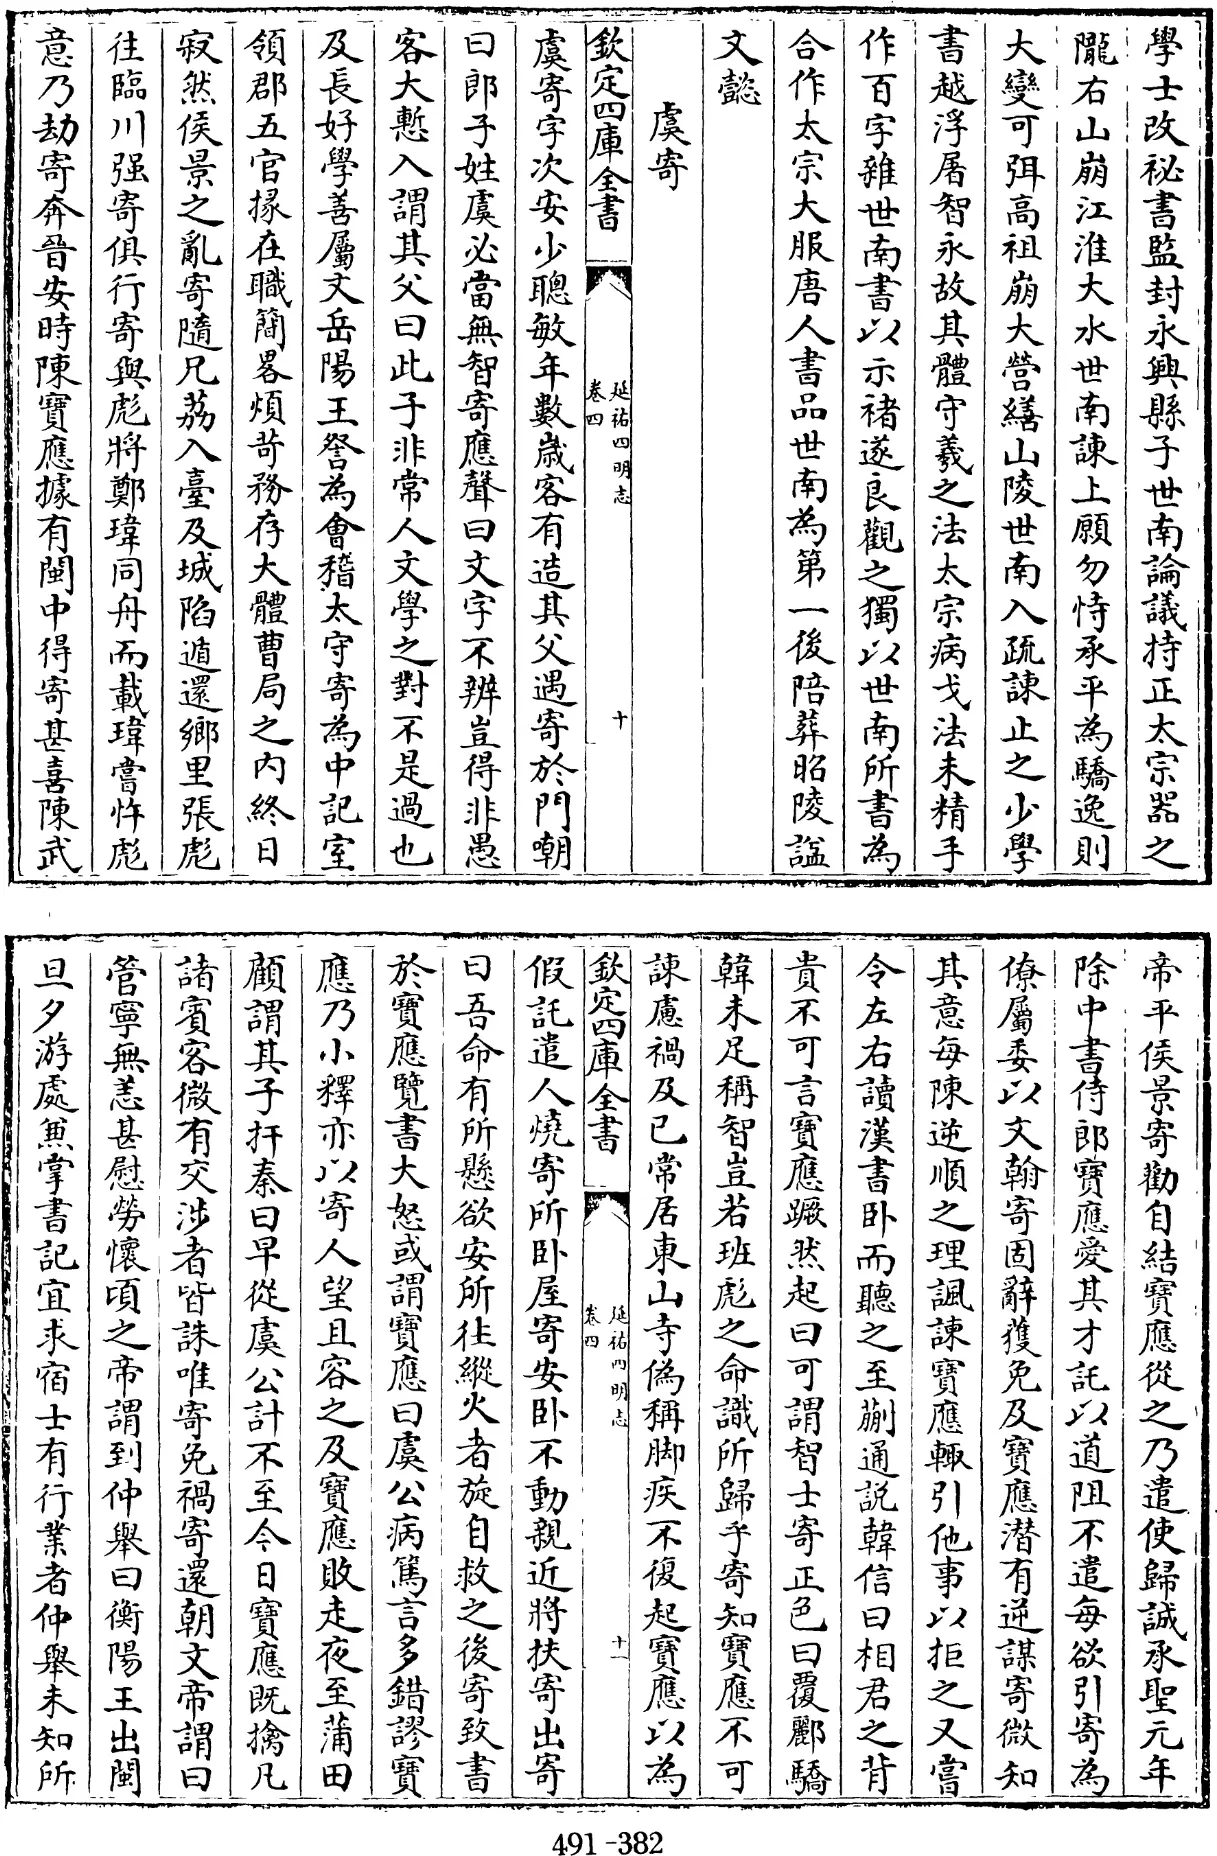 學士改祕書監封永興縣子世南論議持正太宗器之
隴右山崩江淮大水世南諫上願勿恃承平為驕逸則
大變可弭高祖崩大營繕山陵世南入疏諫止之少學
書越浮屠智永故其體守羲之法太宗病戈法未精手
作百字雜世南書以示褚遂良觀之獨以世南所書為
合作太宗大服唐人書品世南為第一後陪葬昭陵諡
文懿
虞寄
欽定四庫全書
延祐四明志
卷四
十
虞寄字次安少聰敏年數歳客有造其父遇寄於門嘲
曰郎子姓虞必當無智寄應聲曰文字不辨豈得非愚
客大慙入謂其父曰此子非常人文學之對不是過也
及長好學善屬文岳陽王詧為會稽太守寄為中記室
領郡五官掾在職簡畧煩苛務存大體曹局之内終日
寂然侯景之亂寄隨兄荔入臺及城陷遁還鄉里張彪
往臨川强寄俱行寄與彪將鄭瑋同舟而載瑋嘗忤彪
意乃劫寄奔晉安時陳寶應據有閩中得寄甚喜陳武
帝平侯景寄勸自結寶應從之乃遣使歸誠承聖元年
除中書侍郎寶應愛其才託以道阻不遣每欲引寄為
僚屬委以文翰寄固辭獲免及寶應潜有逆謀寄微知
其意每陳逆順之理諷諫寶應輙引他事以拒之又嘗
令左右讀漢書卧而聽之至蒯通説韓信曰相君之背
貴不可言寶應蹶然起曰可謂智士寄正色曰覆酈驕
韓未足稱智豈若班彪之命識所歸乎寄知寶應不可
諫慮禍及已常居東山寺偽稱脚疾不復起寶應以為
欽定四庫全書
延祐四明志
卷四
十一
假託遣人燒寄所卧屋寄安卧不動親近將扶寄出寄
曰吾命有所懸欲安所往縱火者旋自救之後寄致書
於寶應覽書大怒或謂寶應曰虞公病篤言多錯謬寶
應乃小釋亦以寄人望且容之及寶應敗走夜至蒲田
顧謂其子扞秦曰早從虞公計不至今日寶應既擒凡
諸賓客微有交涉者皆誅唯寄免禍寄還朝文帝謂曰
管寧無恙甚慰勞懷頃之帝謂到仲舉曰衡陽王出閣
旦夕游處兼掌書記宜求宿士有行業者仲舉未知所
491-382